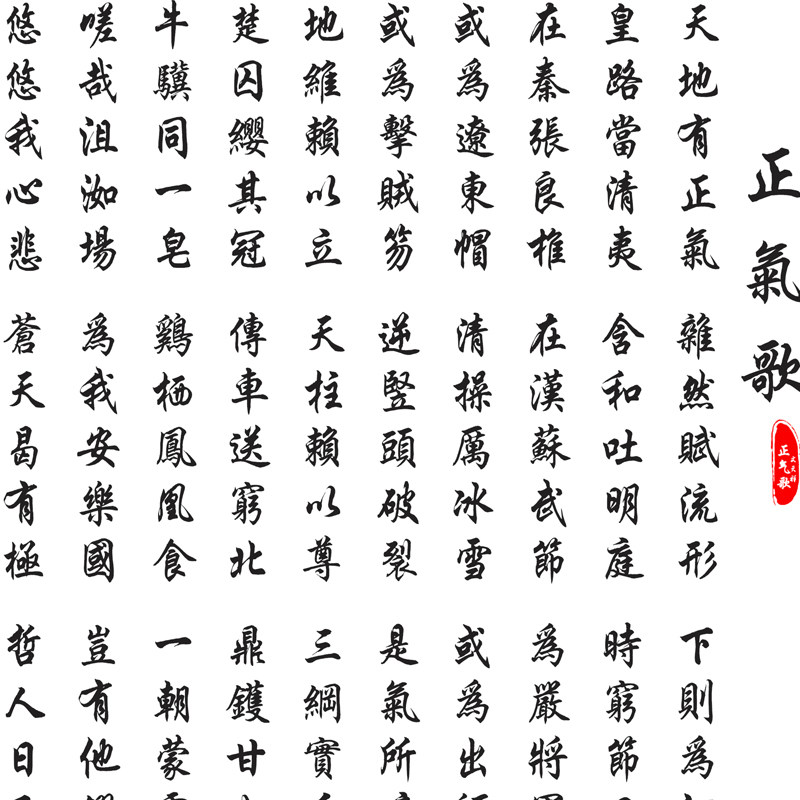 正氣歌
文天祥
正气歌
天地有正氣 雜然賦流形 下則為
皇路當清夷 含和吐明庭 時窮節
在秦張良椎 在漢蘇武節 為嚴將
或為遼東帽 清操厲冰雪 或為出
或為擊賊笏 逆豎頭破裂 是氣所
地維賴以立 天柱賴以尊 三綱實
楚囚纓其冠 傳車送窮北 鼎鑊甘
牛驥同一皂 鷄栖鳳凰食 一朝蒙
嗟哉沮洳場 為我安樂國 豈有他
悠悠我心悲 蒼天曷有極 哲人日